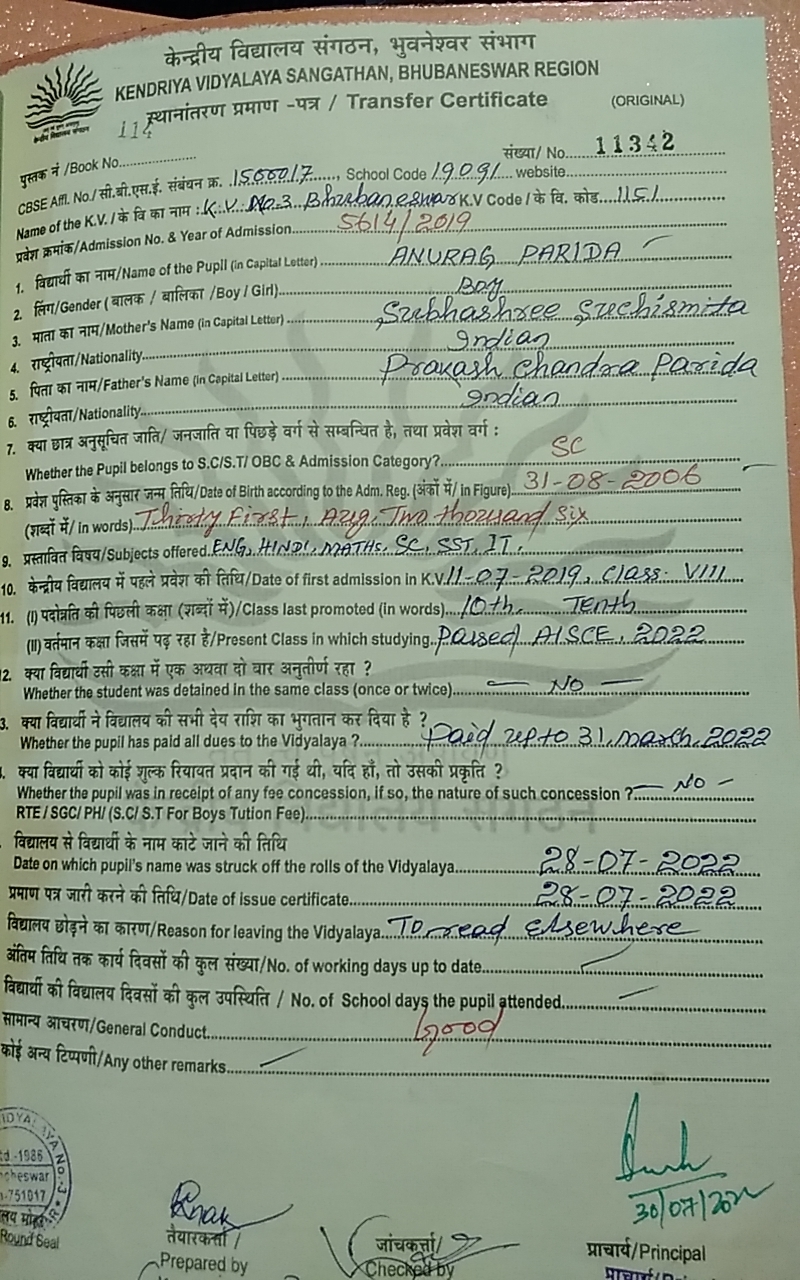 केन्द्रीय विद्यालय संगठन, भुवनेश्वर संभाग
KENDRIYA VIDYALAYA SANGATHAN, BHUBANESWAR REGION
स्थानांतरण प्रमाण -पत्र / Transfer Certificate (ORIGINAL)
पुस्तक नं /Book No. 114 संख्या/ No. 11342
CBSE Affl. No./ सी.बी.एस.ई. संबंधन क्र. 1500017, School Code 19091 website
Name of the K.V. / के वि का नाम : K.V. No.3 Bhubaneswar K.V Code / के वि. कोड 1151
प्रवेश क्रमांक/Admission No. & Year of Admission 5614/2019
1. विद्यार्थी का नाम/Name of the Pupil (in Capital Letter) ANURAG PARIDA
2. लिंग/Gender ( बालक / बालिका /Boy / Girl) Boy
3. माता का नाम/Mother's Name (in Capital Letter) Subhashree Suchismita
4. राष्ट्रीयता/Nationality Indian
5. पिता का नाम/Father's Name (in Capital Letter) Prakash Chandra Parida
6. राष्ट्रीयता/Nationality Indian
7. क्या छात्र अनुसूचित जाति/ जनजाति या पिछड़े वर्ग से सम्बन्धित है, तथा प्रवेश वर्ग :
Whether the Pupil belongs to S.C/S.T/ OBC & Admission Category? SC
8. प्रवेश पुस्तिका के अनुसार जन्म तिथि/Date of Birth according to the Adm. Reg. (अंकों में/ in Figure) 31-08-2006
(शब्दों में/ in words) Thirty First, Aug, Two thousand Six
9. प्रस्तावित विषय/Subjects offered ENG, HINDI, MATHS, SC, SST, IT.
10. केन्द्रीय विद्यालय में पहले प्रवेश की तिथि/Date of first admission in K.V. 11-07-2019, Class- VIII
11. (I) पदोन्नति की पिछली कक्षा (शब्दों में)/Class last promoted (in words) 10th Tenth
(II) वर्तमान कक्षा जिसमें पढ़ रहा है/Present Class in which studying. Passed AISCE, 2022
2. क्या विद्यार्थी उसी कक्षा में एक अथवा दो बार अनुतीर्ण रहा ?
Whether the student was detained in the same class (once or twice) — No —
3. क्या विद्यार्थी ने विद्यालय की सभी देय राशि का भुगतान कर दिया है ?
Whether the pupil has paid all dues to the Vidyalaya ? Paid up to 31, march, 2022
क्या विद्यार्थी को कोई शुल्क रियायत प्रदान की गई थी, यदि हाँ, तो उसकी प्रकृति ?
Whether the pupil was in receipt of any fee concession, if so, the nature of such concession ? — No —
RTE / SGC/ PH/ (S.C/ S.T For Boys Tution Fee)
विद्यालय से विद्यार्थी के नाम काटे जाने की तिथि
Date on which pupil's name was struck off the rolls of the Vidyalaya 28-07-2022
प्रमाण पत्र जारी करने की तिथि/Date of issue certificate 28-07-2022
विद्यालय छोड़ने का कारण/Reason for leaving the Vidyalaya To read Elsewhere
अंतिम तिथि तक कार्य दिवसों की कुल संख्या/No. of working days up to date
विद्यार्थी की विद्यालय दिवसों की कुल उपस्थिति / No. of School days the pupil attended
सामान्य आचरण/General Conduct Good
कोई अन्य टिप्पणी/Any other remarks
-1986
751017
Round Seal
30/07/2022
तैयारकर्ता / जांचकर्ता/ प्राचार्य/Principal
Prepared by Checked by